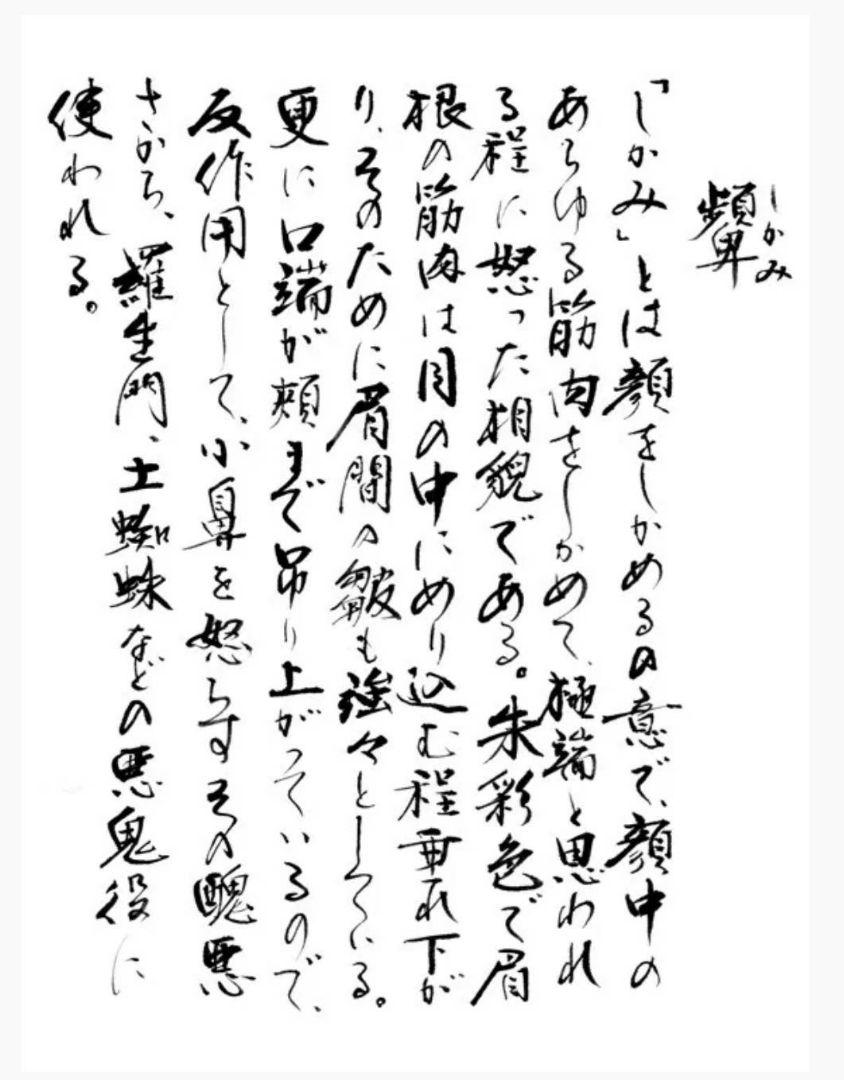 しかみ
顰
「しかみ」とは顔をしかめるの意で、顔中の
あらゆる筋肉をしかめて、極端と思われ
る程に怒った相貌である。朱彩色で眉
根の筋肉は目の中にめり込む程垂れ下が
り、そのために眉間の皺も強々としている。
更に口端が頬まで吊り上がっているので、
反作用として、小鼻を怒らすその醜悪
さから、羅生門、土蜘蛛などの悪鬼役に
使われる。